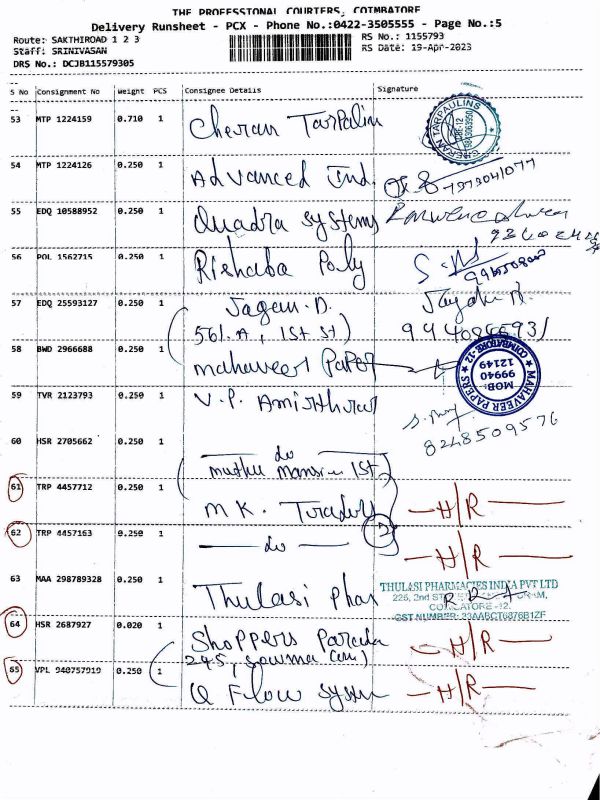 THE PROFESSIONAL COURIERS, COIMBATORE
Delivery Runsheet - PCX - Phone No.:0422-3505555 - Page No.:5
Route: SAKTHIROAD 1 2 3
RS No.: 1155793
Staff: SRINIVASAN
RS Date: 19-Apr-2023
DRS No.: DCJB115579305
S No Consignment No Weight PCS Consignee Details Signature
53 MTP 1224159 0.710 1 Cheran Tarpalin
CHERAN TARPAULINS
54 MTP 1224126 0.250 1 Advanced Ind.
55 EDQ 10588952 0.250 1 Quadra Systems
56 POL 1562715 0.250 1 Rishaba Poly
57 EDQ 25593127 0.250 1 Jagan.D.
561.A, 1st St)
58 BWD 2966688 0.250 1 mahaveer Paper
MAHAVEER PAPERS COIMBATORE-12
MOB: 99940 12149
59 TVR 2123793 0.250 1 V.P. Amirthraj
8248509576
60 HSR 2705662 0.250 1 do
muthu mansion 1st)
61 TRP 4457712 0.250 1 M K. Traders H/R
62 TRP 4457163 0.250 1 do 2 H/R
63 MAA 298789328 0.250 1 Thulasi Phar
THULASI PHARMACIES INDIA PVT LTD
226, 2nd
COIMBATORE -12.
GST NUMBER:
64 HSR 2687927 0.020 1 Shoppers Parada H/R
245, Sowma
65 VPL 940757919 0.250 1 Q Flow System H/R